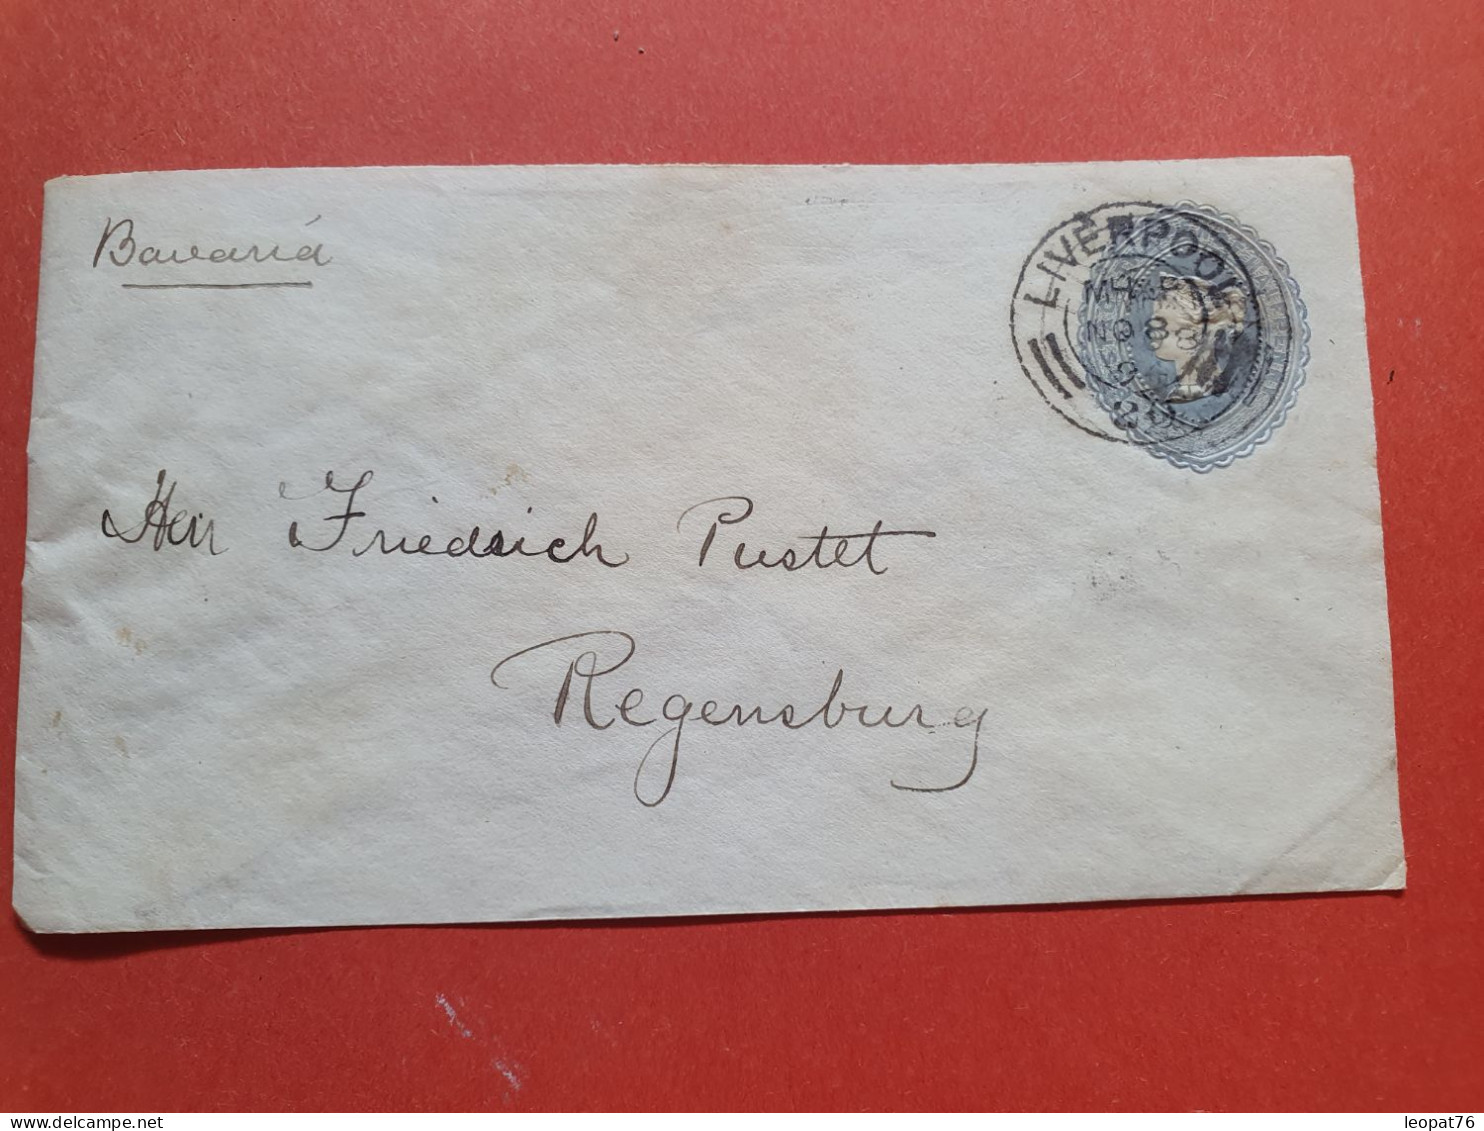 Bavaria
LIVERPOOL
NO 8
Herr Friedrich Pustet
Regensburg
leopat76
DELCAMPE.NET